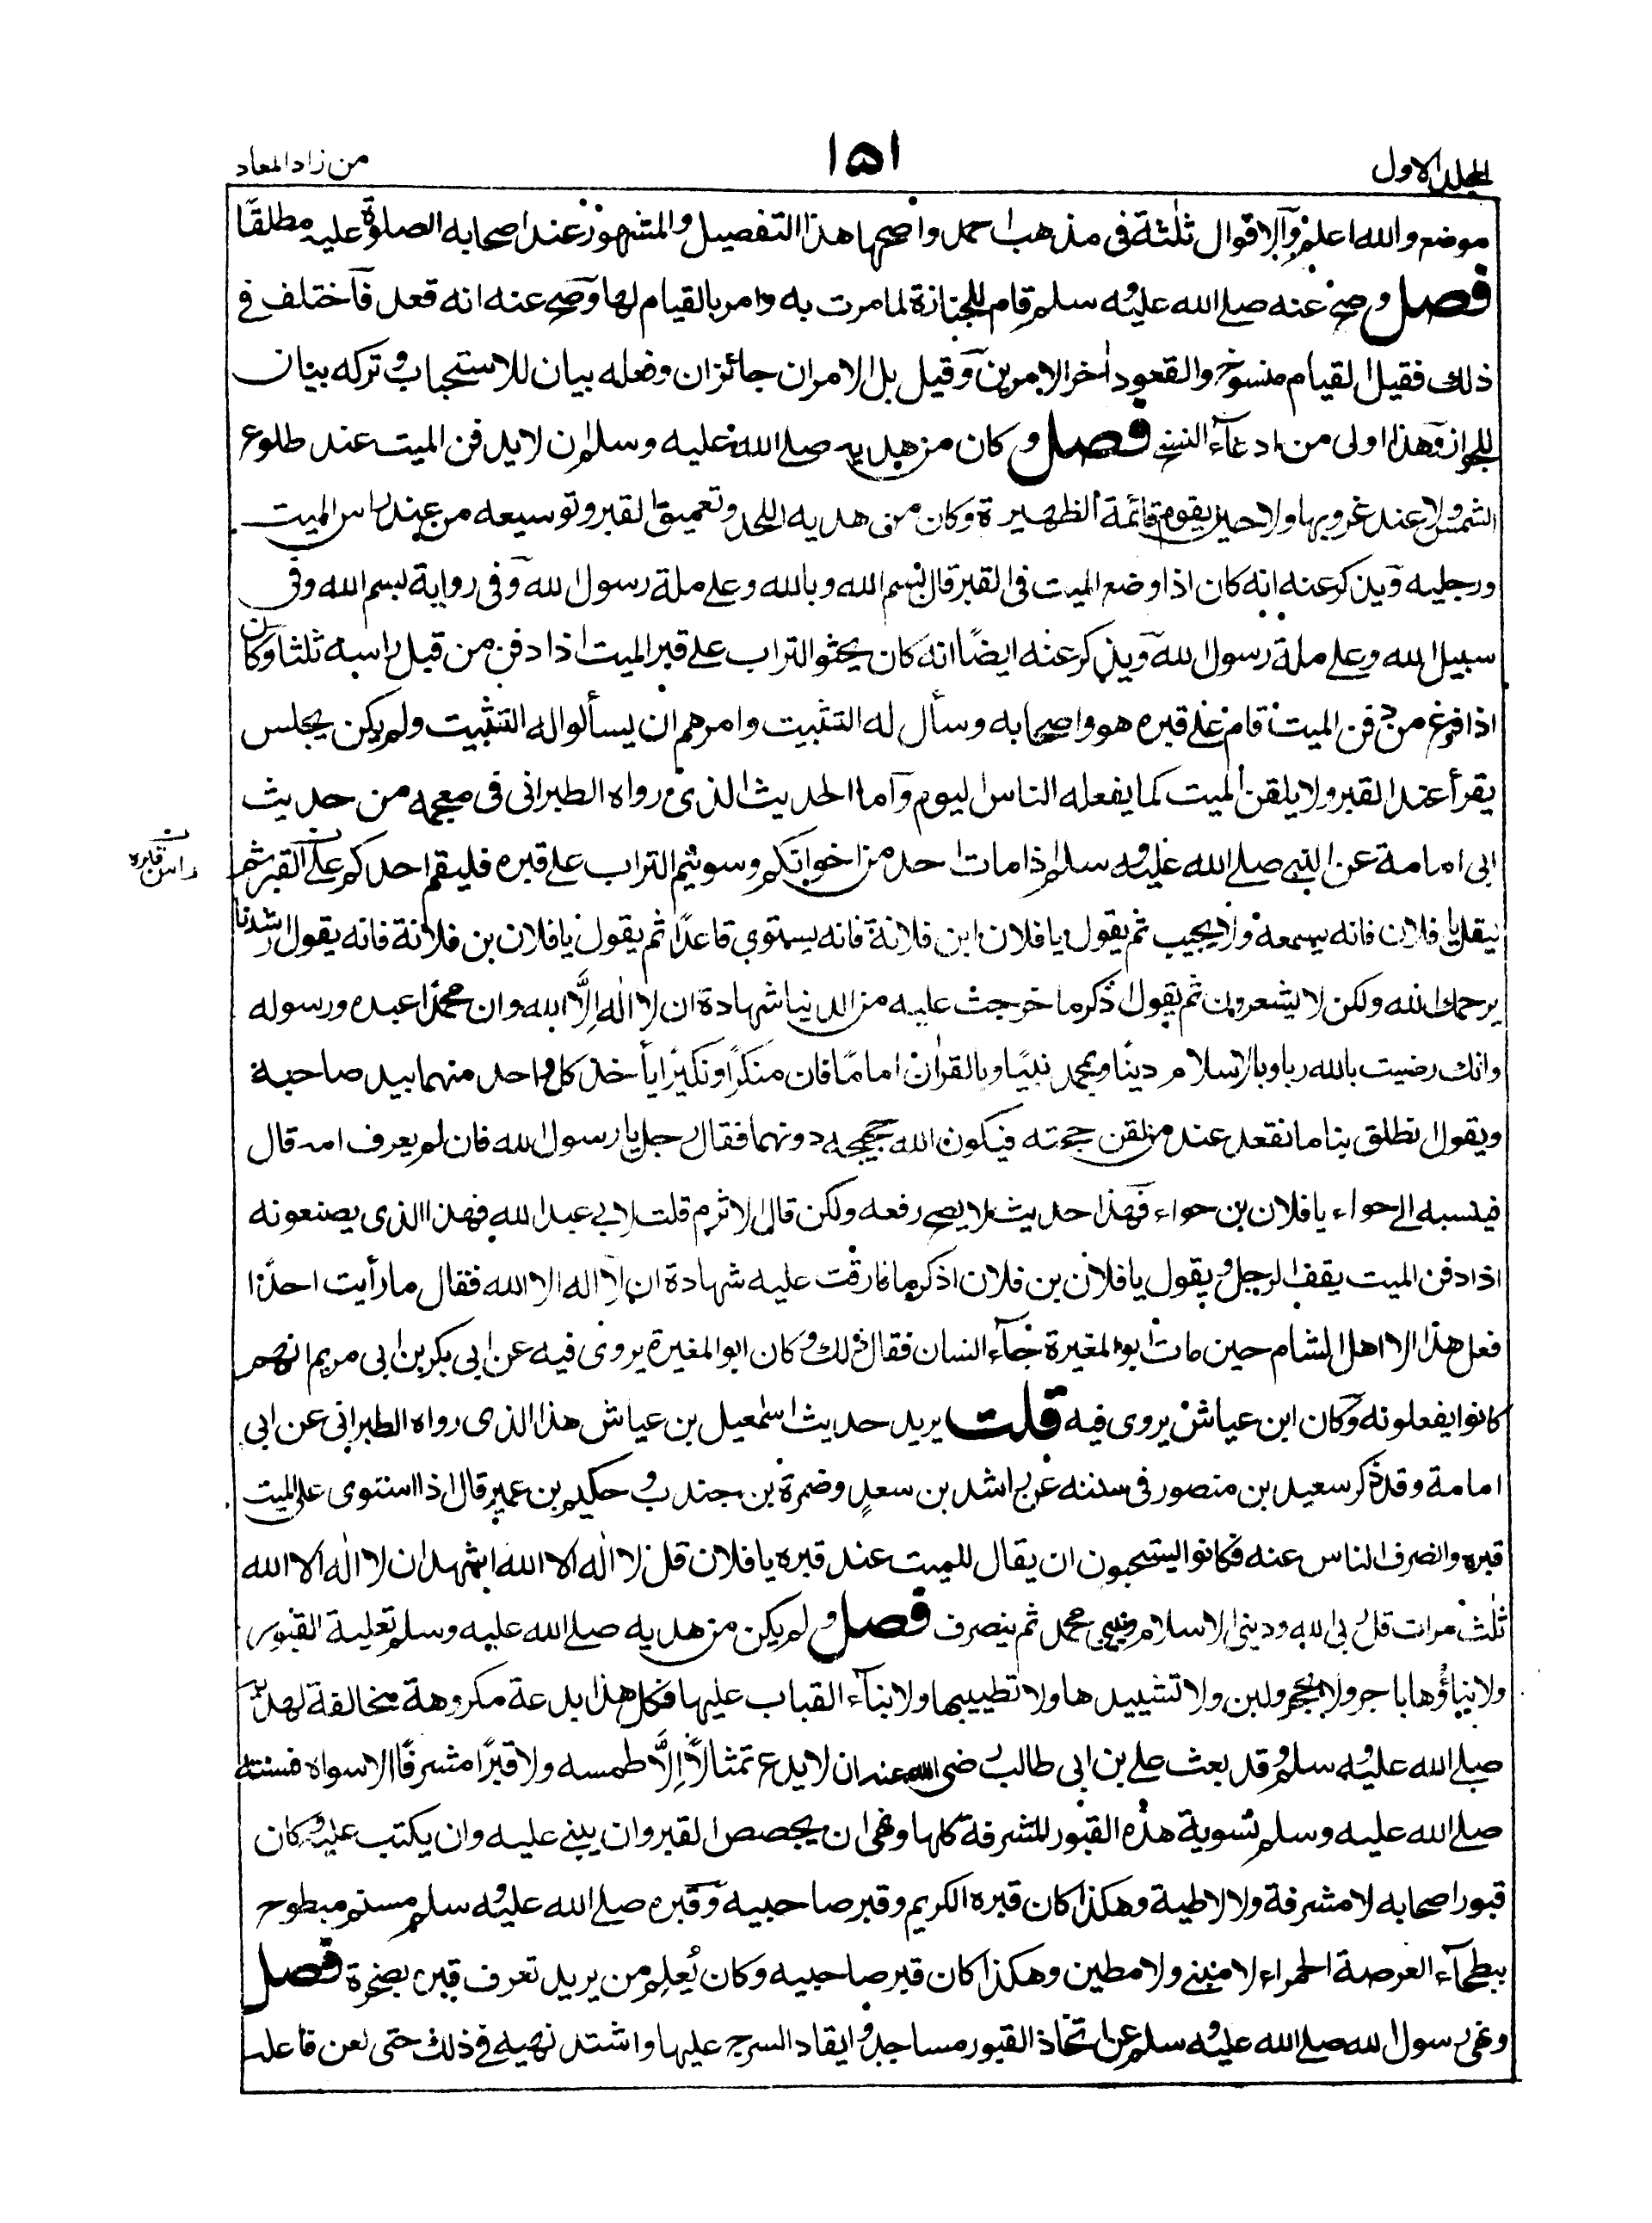 المجلد الاول
١٥١
من زاد المعاد
موضع والله اعلم والاقوال ثلثة فى مذهب احمد واصحها هذا التفصيل والمشهور عند اصحابه الصلوة عليه مطلقًا
فصل وصح عنه صلے الله عليه وسلم قام للجنازة لما مرت به وامر بالقيام لها وصح عنه انه قعد فاختلف فى
ذلك فقيل القيام منسوخ والقعود اخر الامرين وقيل بل الامران جائزان وفعله بيان للاستحباب وتركه بيان
للجواز وهذا اولى من ادعاء النسخ فصل وكان من هديه صلے الله عليه وسلم ان لا يدفن الميت عند طلوع
الشمس ولا عند غروبها ولا حين يقوم قائمة الظهيرة وكان من هديه اللحد وتعميق القبر وتوسيعه من عند راس الميت
ورجليه ويذكر عنه انه كان اذا وضع الميت فى القبر قال بسم الله وبالله وعلے ملة رسول الله وفى رواية بسم الله وفى
سبيل الله وعلے ملة رسول الله ويذكر عنه ايضًا انه كان يحثو التراب علے قبر الميت اذا دفن من قبل راسه ثلثا وكان
اذا فرغ من دفن الميت قام علے قبره هو واصحابه وسأل له التثبيت وامرهم ان يسألوا له التثبيت ولم يكن يجلس
يقرأ عند القبر ولا يلقن الميت كما يفعله الناس اليوم وآما الحديث الذى رواه الطبرانى فى معجمه من حديث
ابى امامة عن النبى صلے الله عليه وسلم اذا مات احد من اخوانكم وسويتم التراب علے قبره فليقم احدكم علے القبر ثم
راس قبره
ليقل يا فلان فانه يسمعه ولا يجيب ثم يقول يا فلان ابن فلانة فانه يستوى قاعدًا ثم يقول يا فلان بن فلانة فانه يقول ارشدنا
يرحمك الله ولكن لا يشعرون ثم يقول اذكر ما خرجت عليه من الدنيا شهادة ان لا اله الّا الله وان محمدًا عبده ورسوله
وانك رضيت بالله ربا وبالاسلام دينًا وبمحمد نبيًا وبالقران امامًا فان منكرًا ونكيرًا يأخذ كل واحد منهما بيد صاحبه
ويقول انطلق بنا ما نقعد عند من لقن حجته فيكون الله حجيجه دونهما فقال رجل يا رسول الله فان لم يعرف امه قال
فينسبه الى حواء يا فلان بن حواء فهذا حديث لا يصح رفعه ولكن قال الاثرم قلت لابى عبد الله فهذا الذى يصنعونه
اذا دفن الميت يقف الرجل ويقول يا فلان بن فلان اذكر ما فارقت عليه شهادة ان لا اله الا الله فقال ما رأيت احدًا
فعل هذا الا اهل الشام حين مات ابو المغيرة جاء انسان فقال ذلك وكان ابو المغيرة يروى فيه عن ابى بكر بن ابى مريم انهم
كانوا يفعلونه وكان ابن عياش يروى فيه قلت يريد حديث اسمعيل بن عياش هذا الذى رواه الطبرانى عن ابى
امامة وقد ذكر سعيد بن منصور فى سننه عن راشد بن سعد وضمرة بن جندب وحكيم بن عمير قال اذا استوى علے الميت
قبره وانصرف الناس عنه فكانوا يستحبون ان يقال للميت عند قبره يا فلان قل لا اله الا الله اشهد ان لا اله الا الله
ثلث مرات قل ربى الله ودينى الاسلام ونبيى محمد ثم ينصرف فصل ولم يكن من هديه صلے الله عليه وسلم تعلية القبور
ولا بناؤها باجر ولا بحجر ولبن ولا تشييدها ولا تطيينها ولا بناء القباب عليها فكل هذا بدعة مكروهة مخالفة لهديه
صلے الله عليه وسلم وقد بعث علے بن ابى طالب رضى الله عنه ان لا يدع تمثالًا الّا طمسه ولا قبرًا مشرفًا الا سواه فسنته
صلے الله عليه وسلم تسوية هذه القبور المشرفة كلها ونهى ان يجصص القبر وان يبنى عليه وان يكتب عليه وكان
قبور اصحابه لا مشرفة ولا لاطية وهكذا كان قبره الكريم وقبر صاحبيه وقبره صلے الله عليه وسلم مسنم مبطوح
ببطحاء العرصة الحمراء لا مبنى ولا مطين وهكذا كان قبر صاحبيه وكان يُعلم من يريد تعرف قبره بصخرة فصل
ونهى رسول الله صلے الله عليه وسلم عن اتخاذ القبور مساجد وايقاد السرج عليها واشتد نهيه فى ذلك حتى لعن فاعله